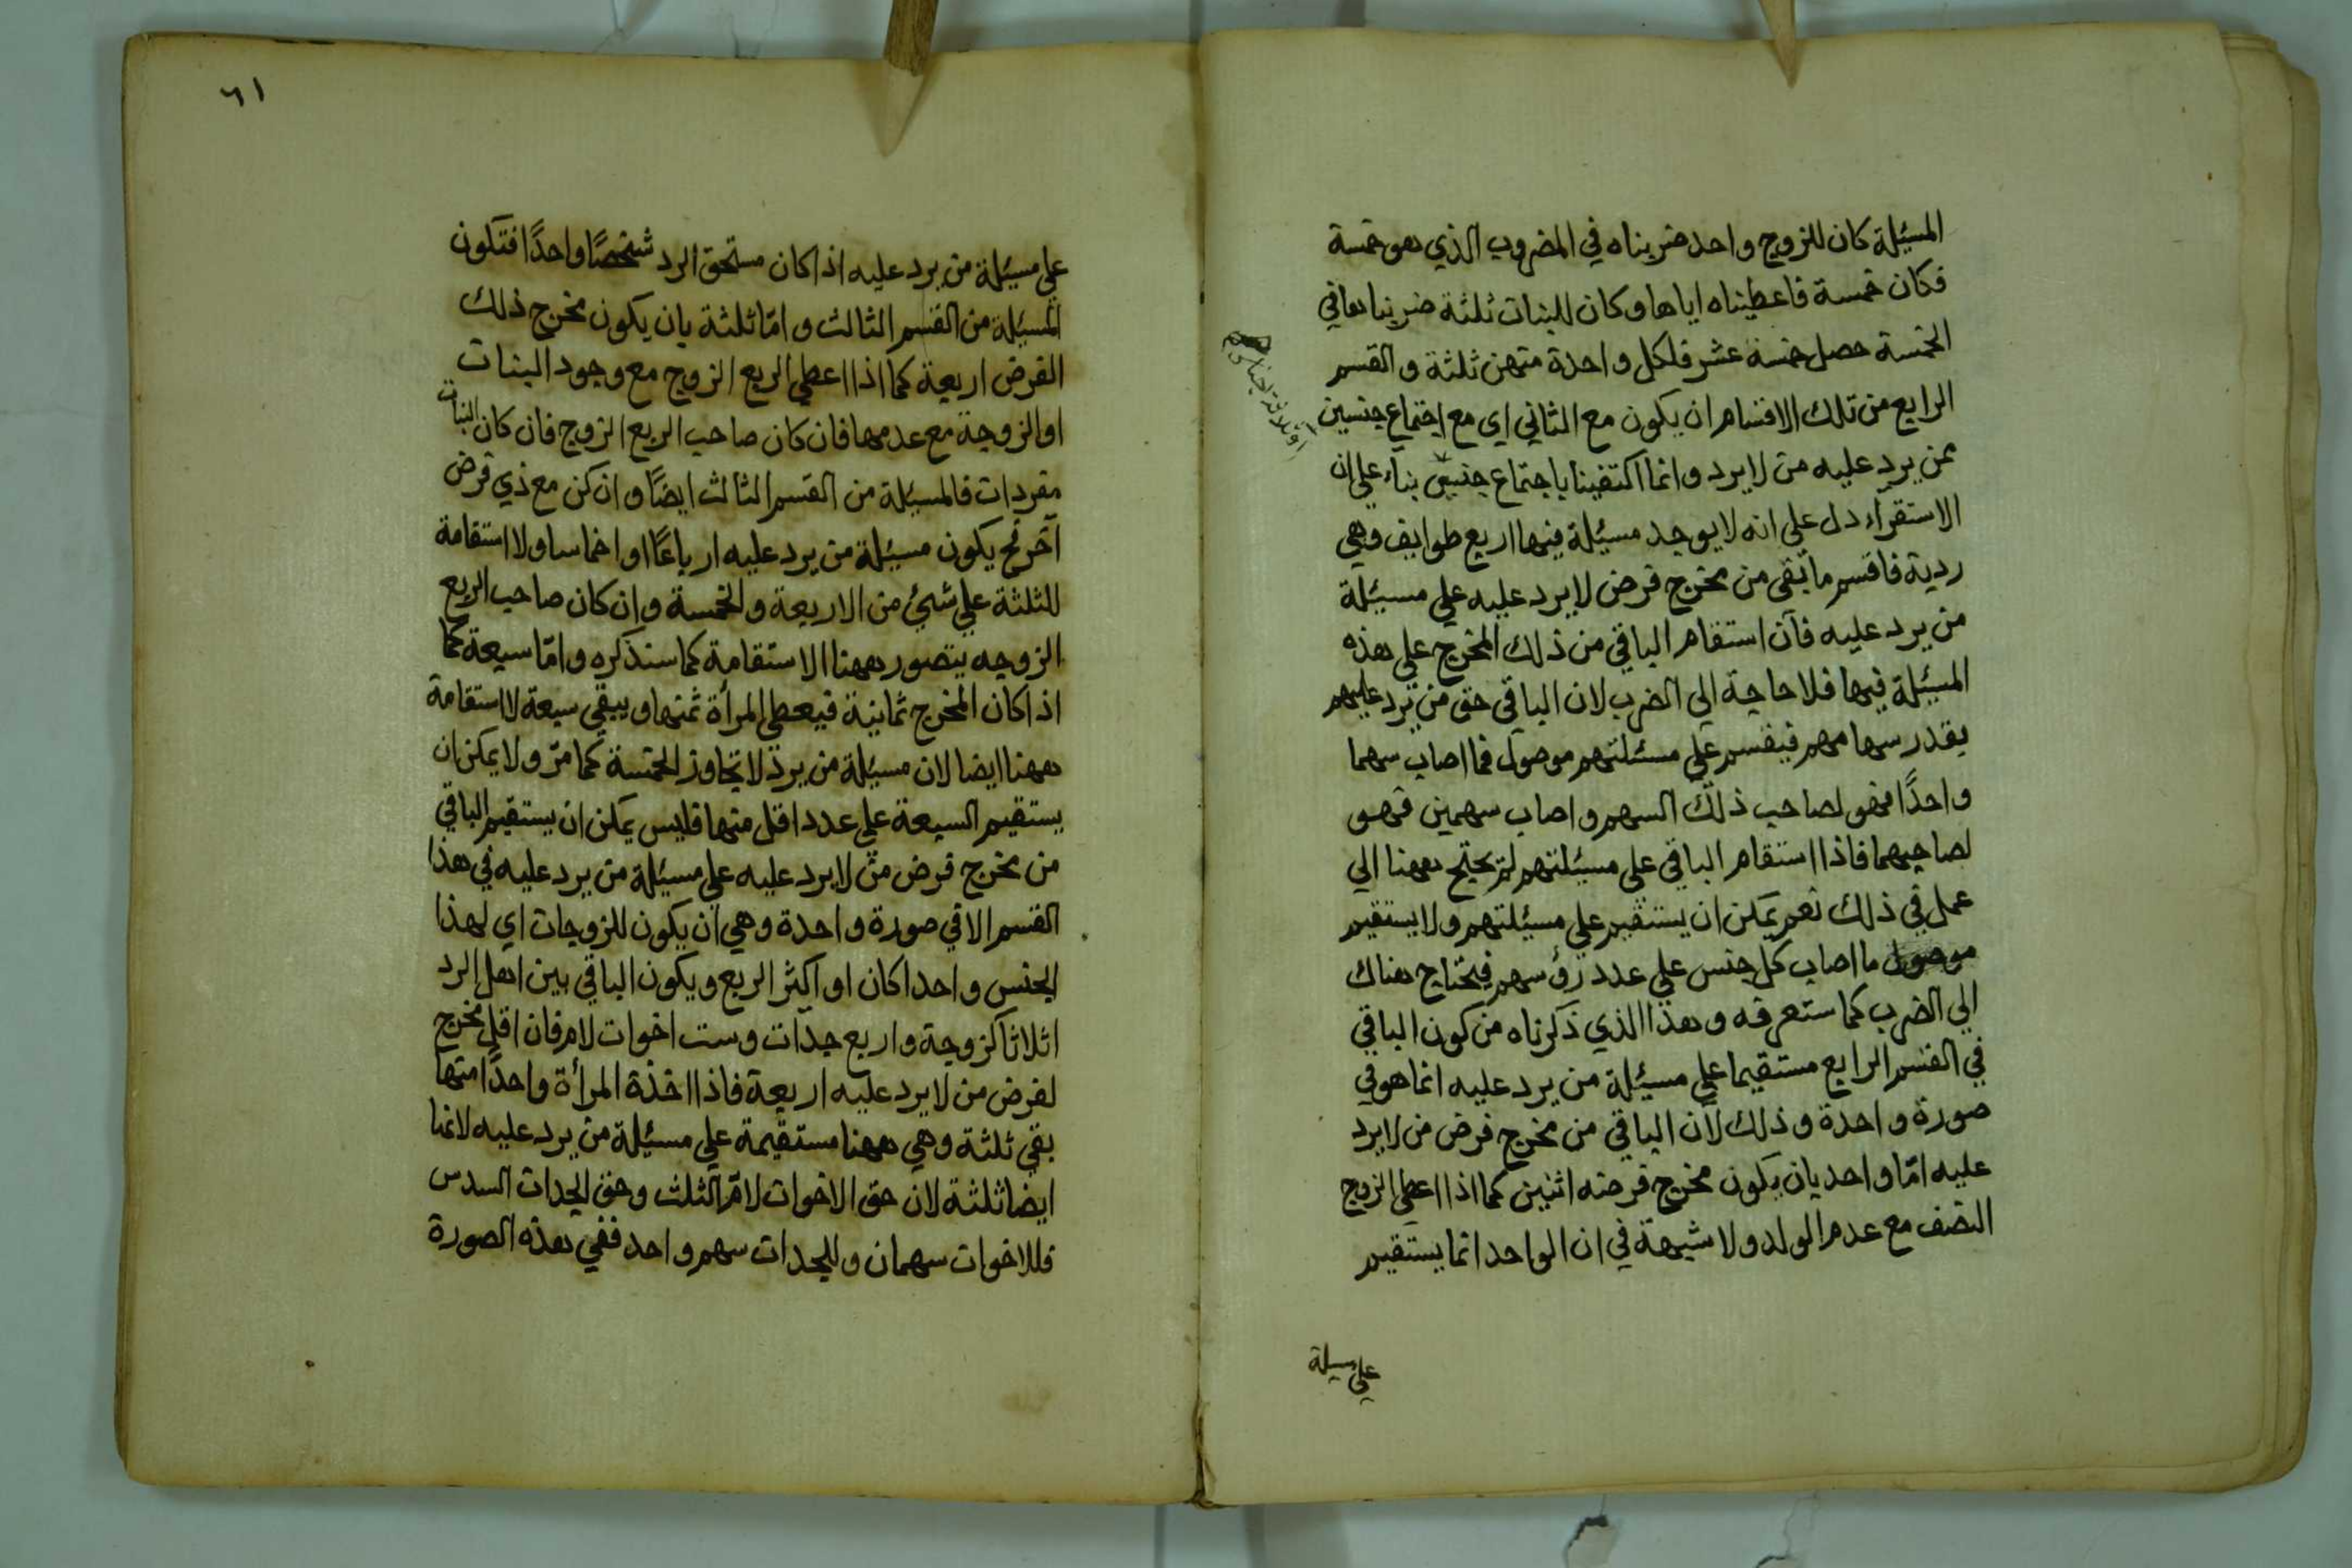 المسئلة كان للزوج واحد ضربناه في المضروب الذي هو خمسة
فكان خمسة فاعطيناه اياها وكان للبنات ثلثة ضربناها في
الخمسة حصل خمسة عشر فلكل واحدة منهن ثلثة والقسم
الرابع من تلك الاقسام ان يكون مع الثاني اي مع اجتماع جنسين
ممن يرد عليه من لا يرد وانما اكتفينا باجتماع جنسين بناء علي ان
الاستقرآء دل علي انه لا يوجد مسئلة فيها اربع طوايف وهي
ردية فاقسم ما بقي من مخرج فرض لا يرد عليه علي مسئلة
من يرد عليه فان استقام الباقي من ذلك المخرج علي هذه
المسئلة فيها فلا حاجة الي الضرب لان الباقي حق من يرد عليهم
بقدر سهامهم فيقسم علي مسئلتهم موصول فما اصاب سهما
واحدًا فهو لصاحب ذلك السهم واصاب سهمين فهو
لصاحبهما فاذا استقام الباقي علي مسئلتهم لم يحتج ههنا الي
عمل في ذلك نعم يمكن ان يستقيم علي مسئلتهم ولا يستقيم
موصول ما اصاب كل جنس علي عدد رؤسهم فيحتاج هناك
الي الضرب كما ستعرفه وهذا الذي ذكرناه من كون الباقي
في القسم الرابع مستقيما علي مسئلة من يرد عليه انما هو في
صورة واحدة وذلك لان الباقي من مخرج فرض من لا يرد
عليه امّا واحد بان يكون مخرج فرضه اثنين كما اذا اعطي الزوج
النصف مع عدم الولد ولا شبهة في ان الواحد انما يستقيم
علي مسيلة
٦١
علي مسئلة من يرد عليه اذا كان مستحق الرد شخصًا واحدًا فتكون
المسئلة من القسم الثالث وامّا ثلثة بان يكون مخرج ذلك
الفرض اربعة كما اذا اعطي الربع الزوج مع وجود البنات
او الزوجة مع عدمها فان كان صاحب الربع الزوج فان كان البنات
مفردات فالمسئلة من القسم الثالث ايضًا وان كن مع ذي فرض
آخر فح يكون مسئلة من يرد عليه ارباعًا او اخماسا ولا استقامة
للثلثة علي شئ من الاربعة والخمسة وان كان صاحب الربع
الزوجه يتصور ههنا الاستقامة كما سنذكره وامّا سبعة كما
اذا كان المخرج ثمانية فيعطي المرأة ثمنها ويبقي سبعة لا استقامة
ههنا ايضا لان مسئلة من يرد لا تجاوز الخمسة كما مرّ ولا يمكن ان
يستقيم السبعة علي عدد اقل منها فليس يمكن ان يستقيم الباقي
من مخرج فرض من لا يرد عليه علي مسئلة من يرد عليه في هذا
القسم الا في صورة واحدة وهي ان يكون للزوجات اي لهذا
الجنس واحدا كان او اكثر الربع ويكون الباقي بين اهل الرد
اثلاثا كزوجة واربع جدّات وست اخوات لام فان اقل مخرج
لفرض من لا يرد عليه اربعة فاذا اخذة المرأة واحدًا منها
بقي ثلثة وهي ههنا مستقيمة علي مسئلة من يرد عليه لانها
ايضا ثلثة لان حق الاخوات لامّ الثلث وحق الجدات السدس
فللاخوات سهمان وللجدات سهم واحد ففي هذه الصورة